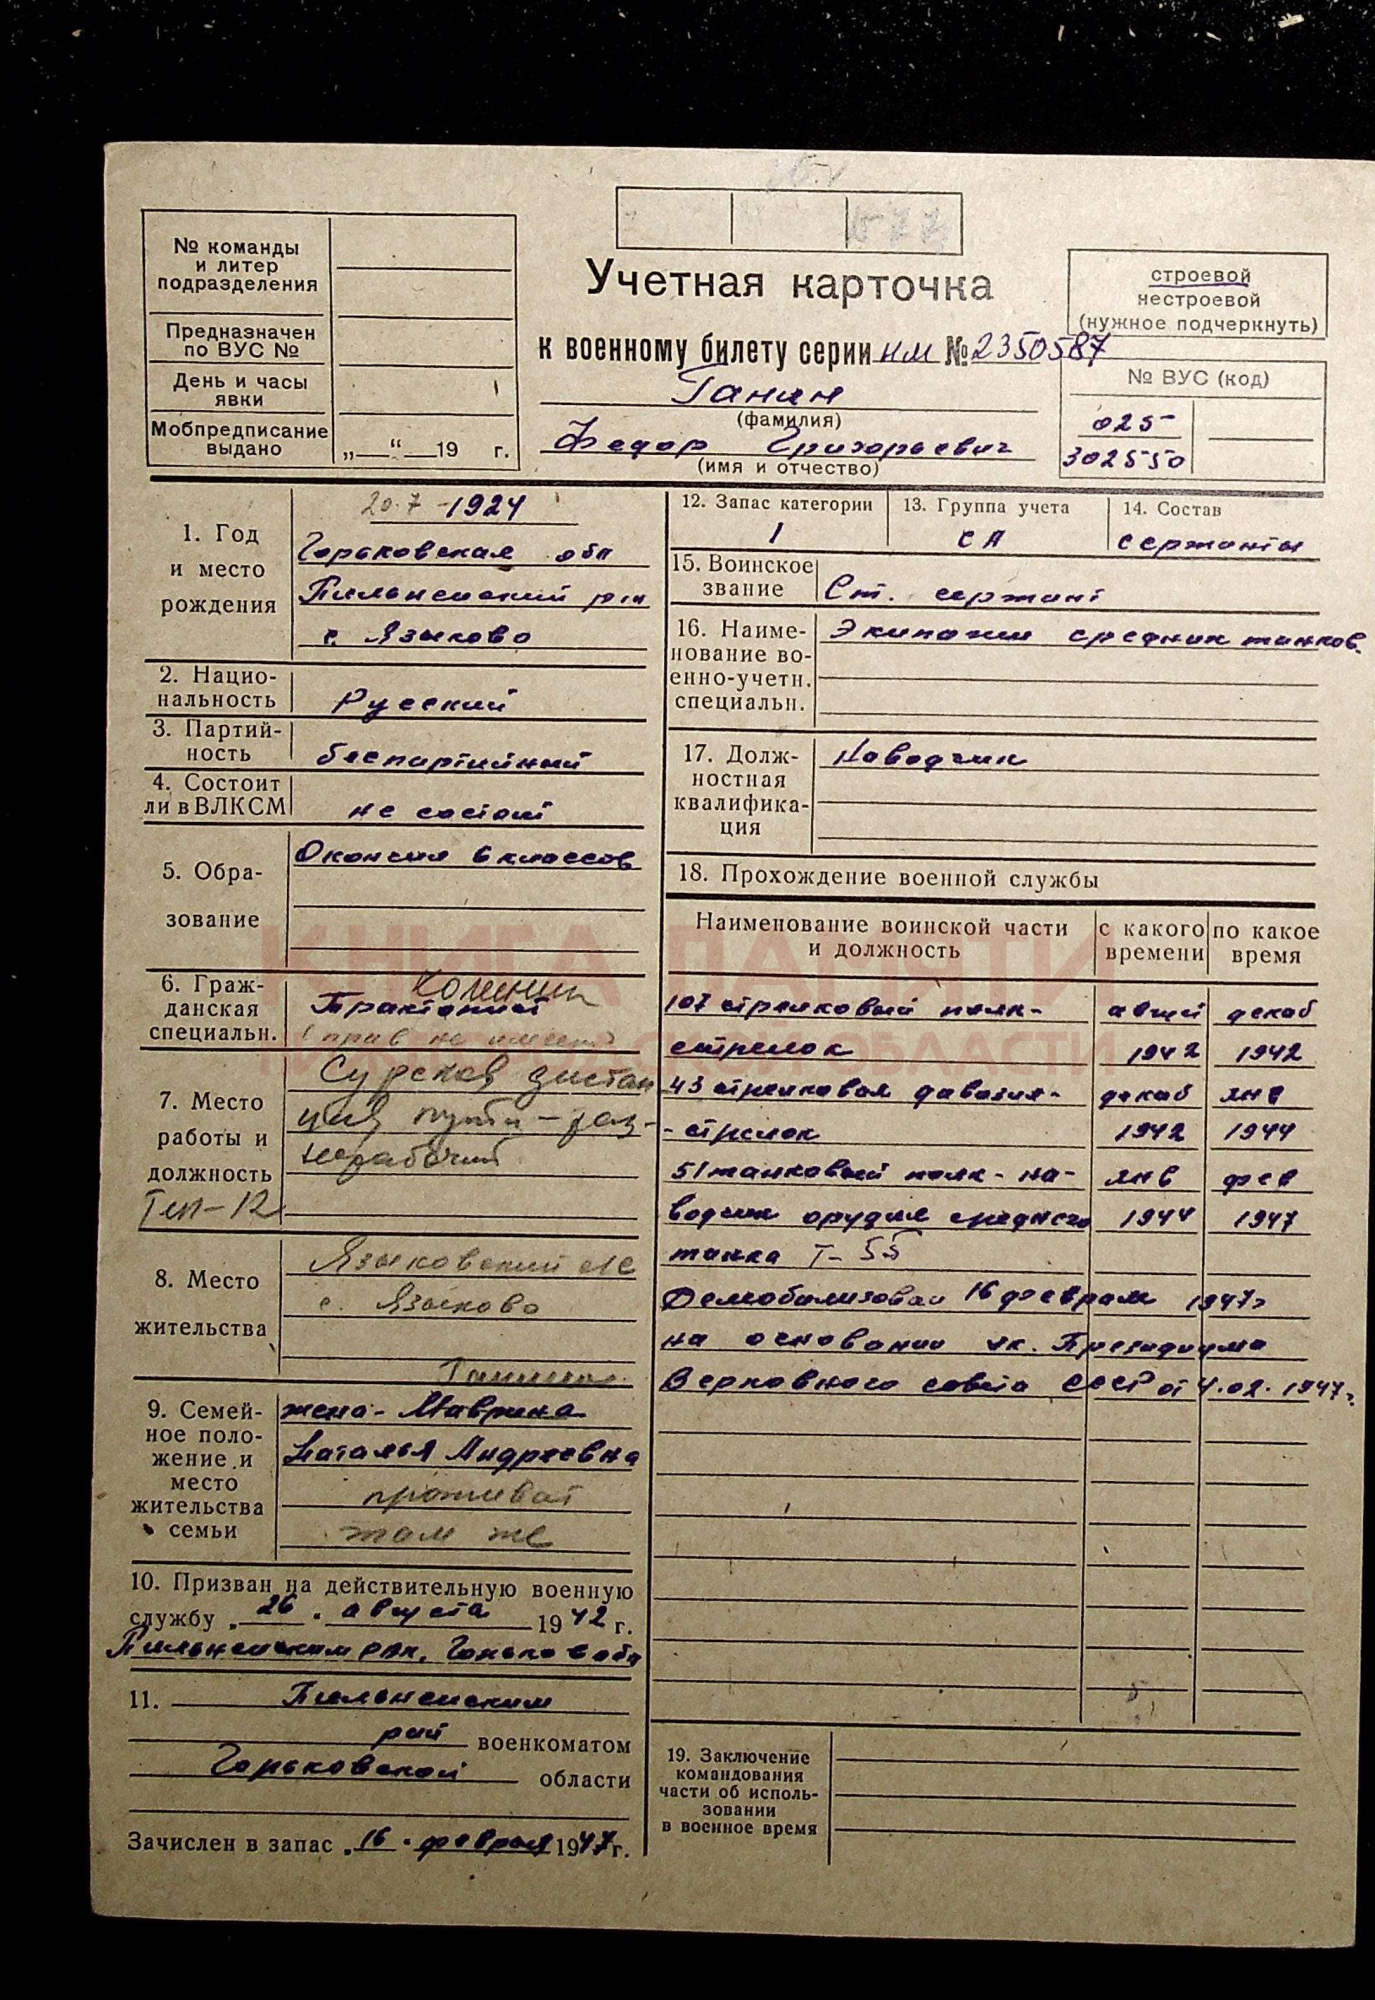 № команды
и литер
подразделения
Предназначен
по ВУС №
День и часы
явки
Мобпредписание
выдано
„ “ 19 г.
577
Учетная карточка
к военному билету серии НМ № 2350587
Ганин
(фамилия)
Федор Григорьевич
(имя и отчество)
строевой
нестроевой
(нужное подчеркнуть)
№ ВУС (код)
025
302550
1. Год
и место
рождения
20.7-1924
Горьковская обл
Пильненский р-н
с. Языково
2. Нацио-
нальность
Русский
3. Партий-
ность
беспартийный
4. Состоит
ли в ВЛКСМ
не состоит
5. Обра-
зование
Окончил 6 классов
6. Граж-
данская
специальн.
Тракторист
(прав не имеет)
7. Место
работы и
должность
Сурсков дистан
ция пути - раз-
норабочий
8. Место
жительства
Языковский с/с
с. Языково
9. Семей-
ное поло-
жение и
место
жительства
семьи
жена - Маврина
Наталья Андреевна
проживает
там же
10. Призван на действительную военную
службу „26“ августа 1942 г.
Пильненским РВК, Горьков обл
11. Пильненским
рай военкоматом
Горьковской области
Зачислен в запас „16“ февраля 1947 г.
12. Запас категории
1
13. Группа учета
СА
14. Состав
сержанты
15. Воинское
звание
Ст. сержант
16. Наиме-
нование во-
енно-учетн.
специальн.
Экипажи средних танков.
17. Долж-
ностная
квалифика-
ция
Наводчик
18. Прохождение военной службы
Наименование воинской части
и должность
с какого
времени
по какое
время
107 стрелковый полк- август декаб
стрелок 1942 1942
43 стрелковая дивизия- декаб янв
- стрелок 1942 1944
51 танковый полк - на- янв фев
водчик орудия среднего 1944 1947
танка Т-55
Демобилизован 16 февраля 1947г
на основании ук. Президиума
Верховного совета СССР от 4.02.1947г.
19. Заключение
командования
части об исполь-
зовании
в военное время
КНИГА ПАМЯТИ
НИЖЕГОРОДСКОЙ ОБЛАСТИ